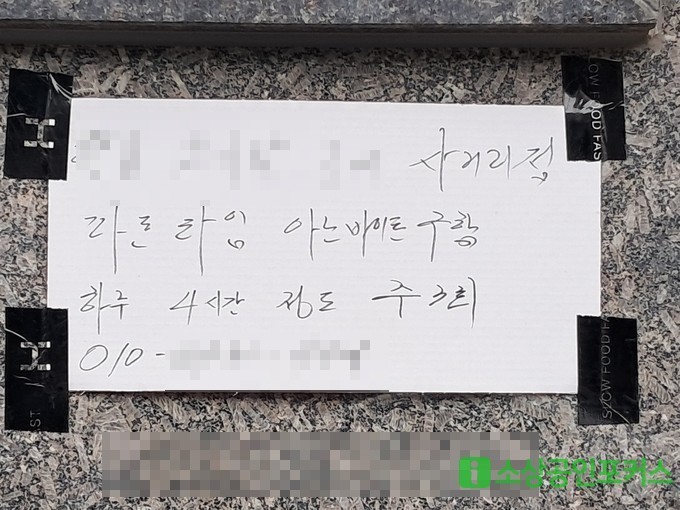 사거리점
파트 타임 아르바이트 구함
하루 4시간 정도 주 3회
010-
SLOW FOOD FAS
SLOW FOOD FA
ST
소상공인포커스